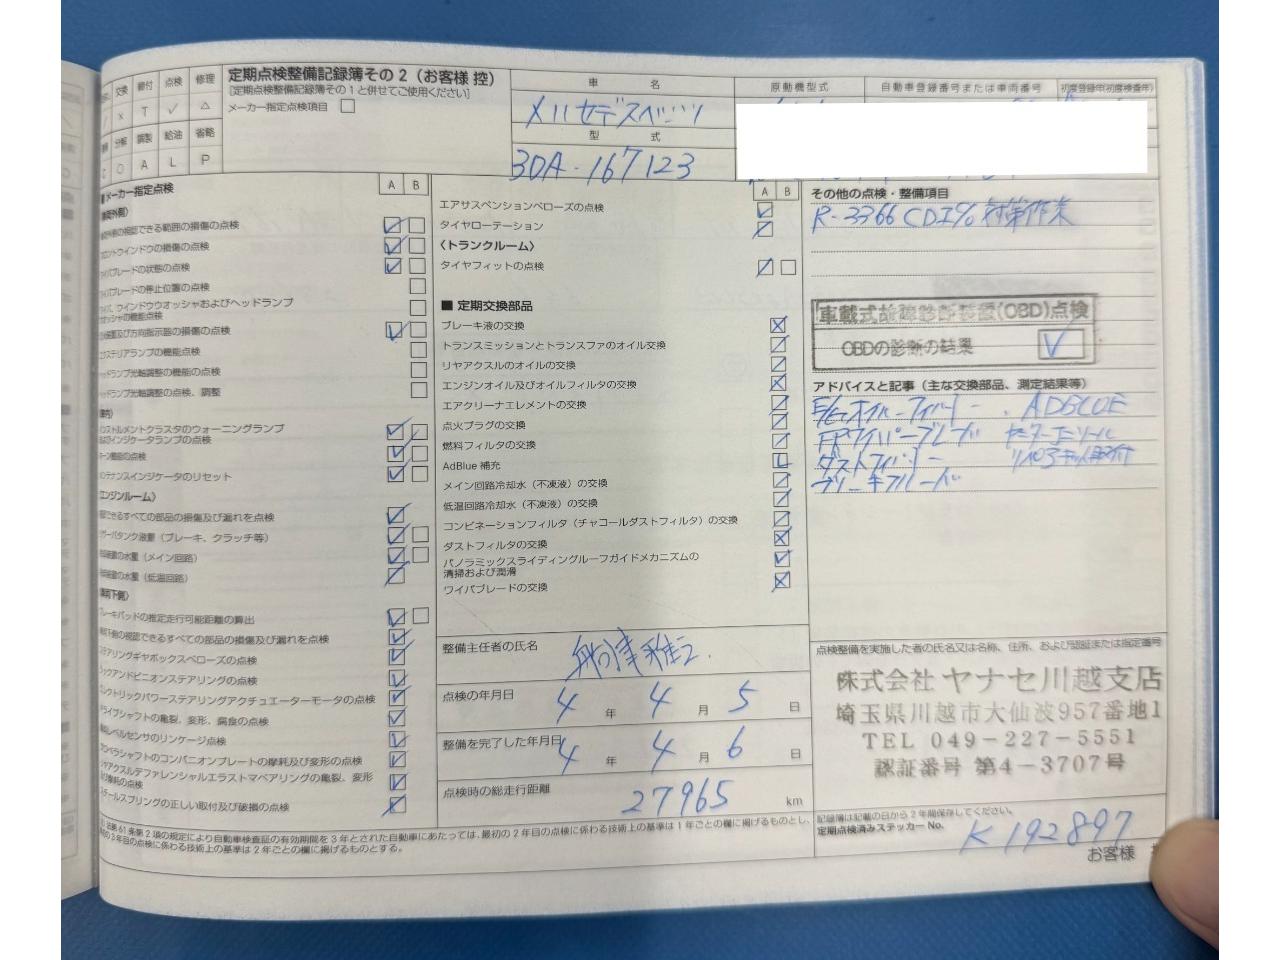 交換 締付 点検 修理
× T ✓ △
分解 調整 給油 省略
○ A L P
定期点検整備記録簿その2（お客様 控）
［定期点検整備記録簿その1と併せてご使用ください］
メーカー指定点検項目
車 名
メルセデスベンツ
型 式
3DA-167123
原動機型式
自動車登録番号または車両番号
初度登録年(初度検査年)
■メーカー指定点検
A B
視認できる範囲の損傷の点検
フロントウインドウの損傷の点検
ワイパブレードの状態の点検
ワイパブレードの停止位置の点検
ワイパ、ウインドウウオッシャおよびヘッドランプ
ウオッシャの機能点検
及び方向指示器の損傷の点検
エクステリアランプの機能点検
ヘッドランプ光軸調整の機能の点検
ヘッドランプ光軸調整の点検、調整
インストルメントクラスタのウォーニングランプ
及びインジケータランプの点検
ホーン機能の点検
メンテナンスインジケータのリセット
エンジンルーム〉
視認できるすべての部品の損傷及び漏れを点検
リザーバタンク液量（ブレーキ、クラッチ等）
冷却装置の水量（メイン回路）
冷却装置の水量（低温回路）
車両下側〉
ブレーキパッドの推定走行可能距離の算出
車両下側の視認できるすべての部品の損傷及び漏れを点検
ステアリングギヤボックスベローズの点検
ラックアンドピニオンステアリングの点検
エレクトリックパワーステアリングアクチュエーターモータの点検
ドライブシャフトの亀裂、変形、腐食の点検
車両レベルセンサのリンケージ点検
プロペラシャフトのコンパニオンプレートの摩耗及び変形の点検
リヤアクスルデファレンシャルエラストマベアリングの亀裂、変形
及び摩耗の点検
スチールスプリングの正しい取付及び破損の点検
A B
エアサスペンションベローズの点検
タイヤローテーション
〈トランクルーム〉
タイヤフィットの点検
■ 定期交換部品
ブレーキ液の交換
トランスミッションとトランスファのオイル交換
リヤアクスルのオイルの交換
エンジンオイル及びオイルフィルタの交換
エアクリーナエレメントの交換
点火プラグの交換
燃料フィルタの交換
AdBlue 補充
メイン回路冷却水（不凍液）の交換
低温回路冷却水（不凍液）の交換
コンビネーションフィルタ（チャコールダストフィルタ）の交換
ダストフィルタの交換
パノラミックスライディングルーフガイドメカニズムの
清掃および潤滑
ワイパブレードの交換
整備主任者の氏名
点検の年月日
4 年 4 月 5 日
整備を完了した年月日
4 年 4 月 6 日
点検時の総走行距離
27965 km
その他の点検・整備項目
R-3366 CDI% 対策作業
車載式故障診断装置(OBD)点検
OBDの診断の結果 ✓
アドバイスと記事（主な交換部品、測定結果等）
E/Gオイル-フィルター、ADBLUE
FRワイパーブレード
ダストフィルター
ブレーキフルード
点検整備を実施した者の氏名又は名称、住所、および認証または指定番号
株式会社 ヤナセ川越支店
埼玉県川越市大仙波957番地1
TEL 049-227-5551
認証番号 第4-3707号
記録簿は記載の日から2年間保存してください。
定期点検済みステッカー No. K192897
法第61条第2項の規定により自動車検査証の有効期間を3年とされた自動車にあたっては、最初の2年目の点検に係わる技術上の基準は1年ごとの欄に掲げるものとし、
3年目の点検に係わる技術上の基準は2年ごとの欄に掲げるものとする。
お客様